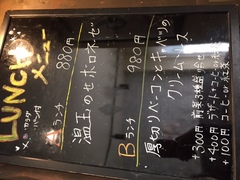 LUNCH
メニュー
Aランチ
880円
温玉のせボロネーゼ
Bランチ
980円
厚切りベーコンとキャベツの
クリームソース
+300円 前菜3種盛り合せ
+400円 デザート+コーヒーor紅茶
+100円 コーヒーor紅茶